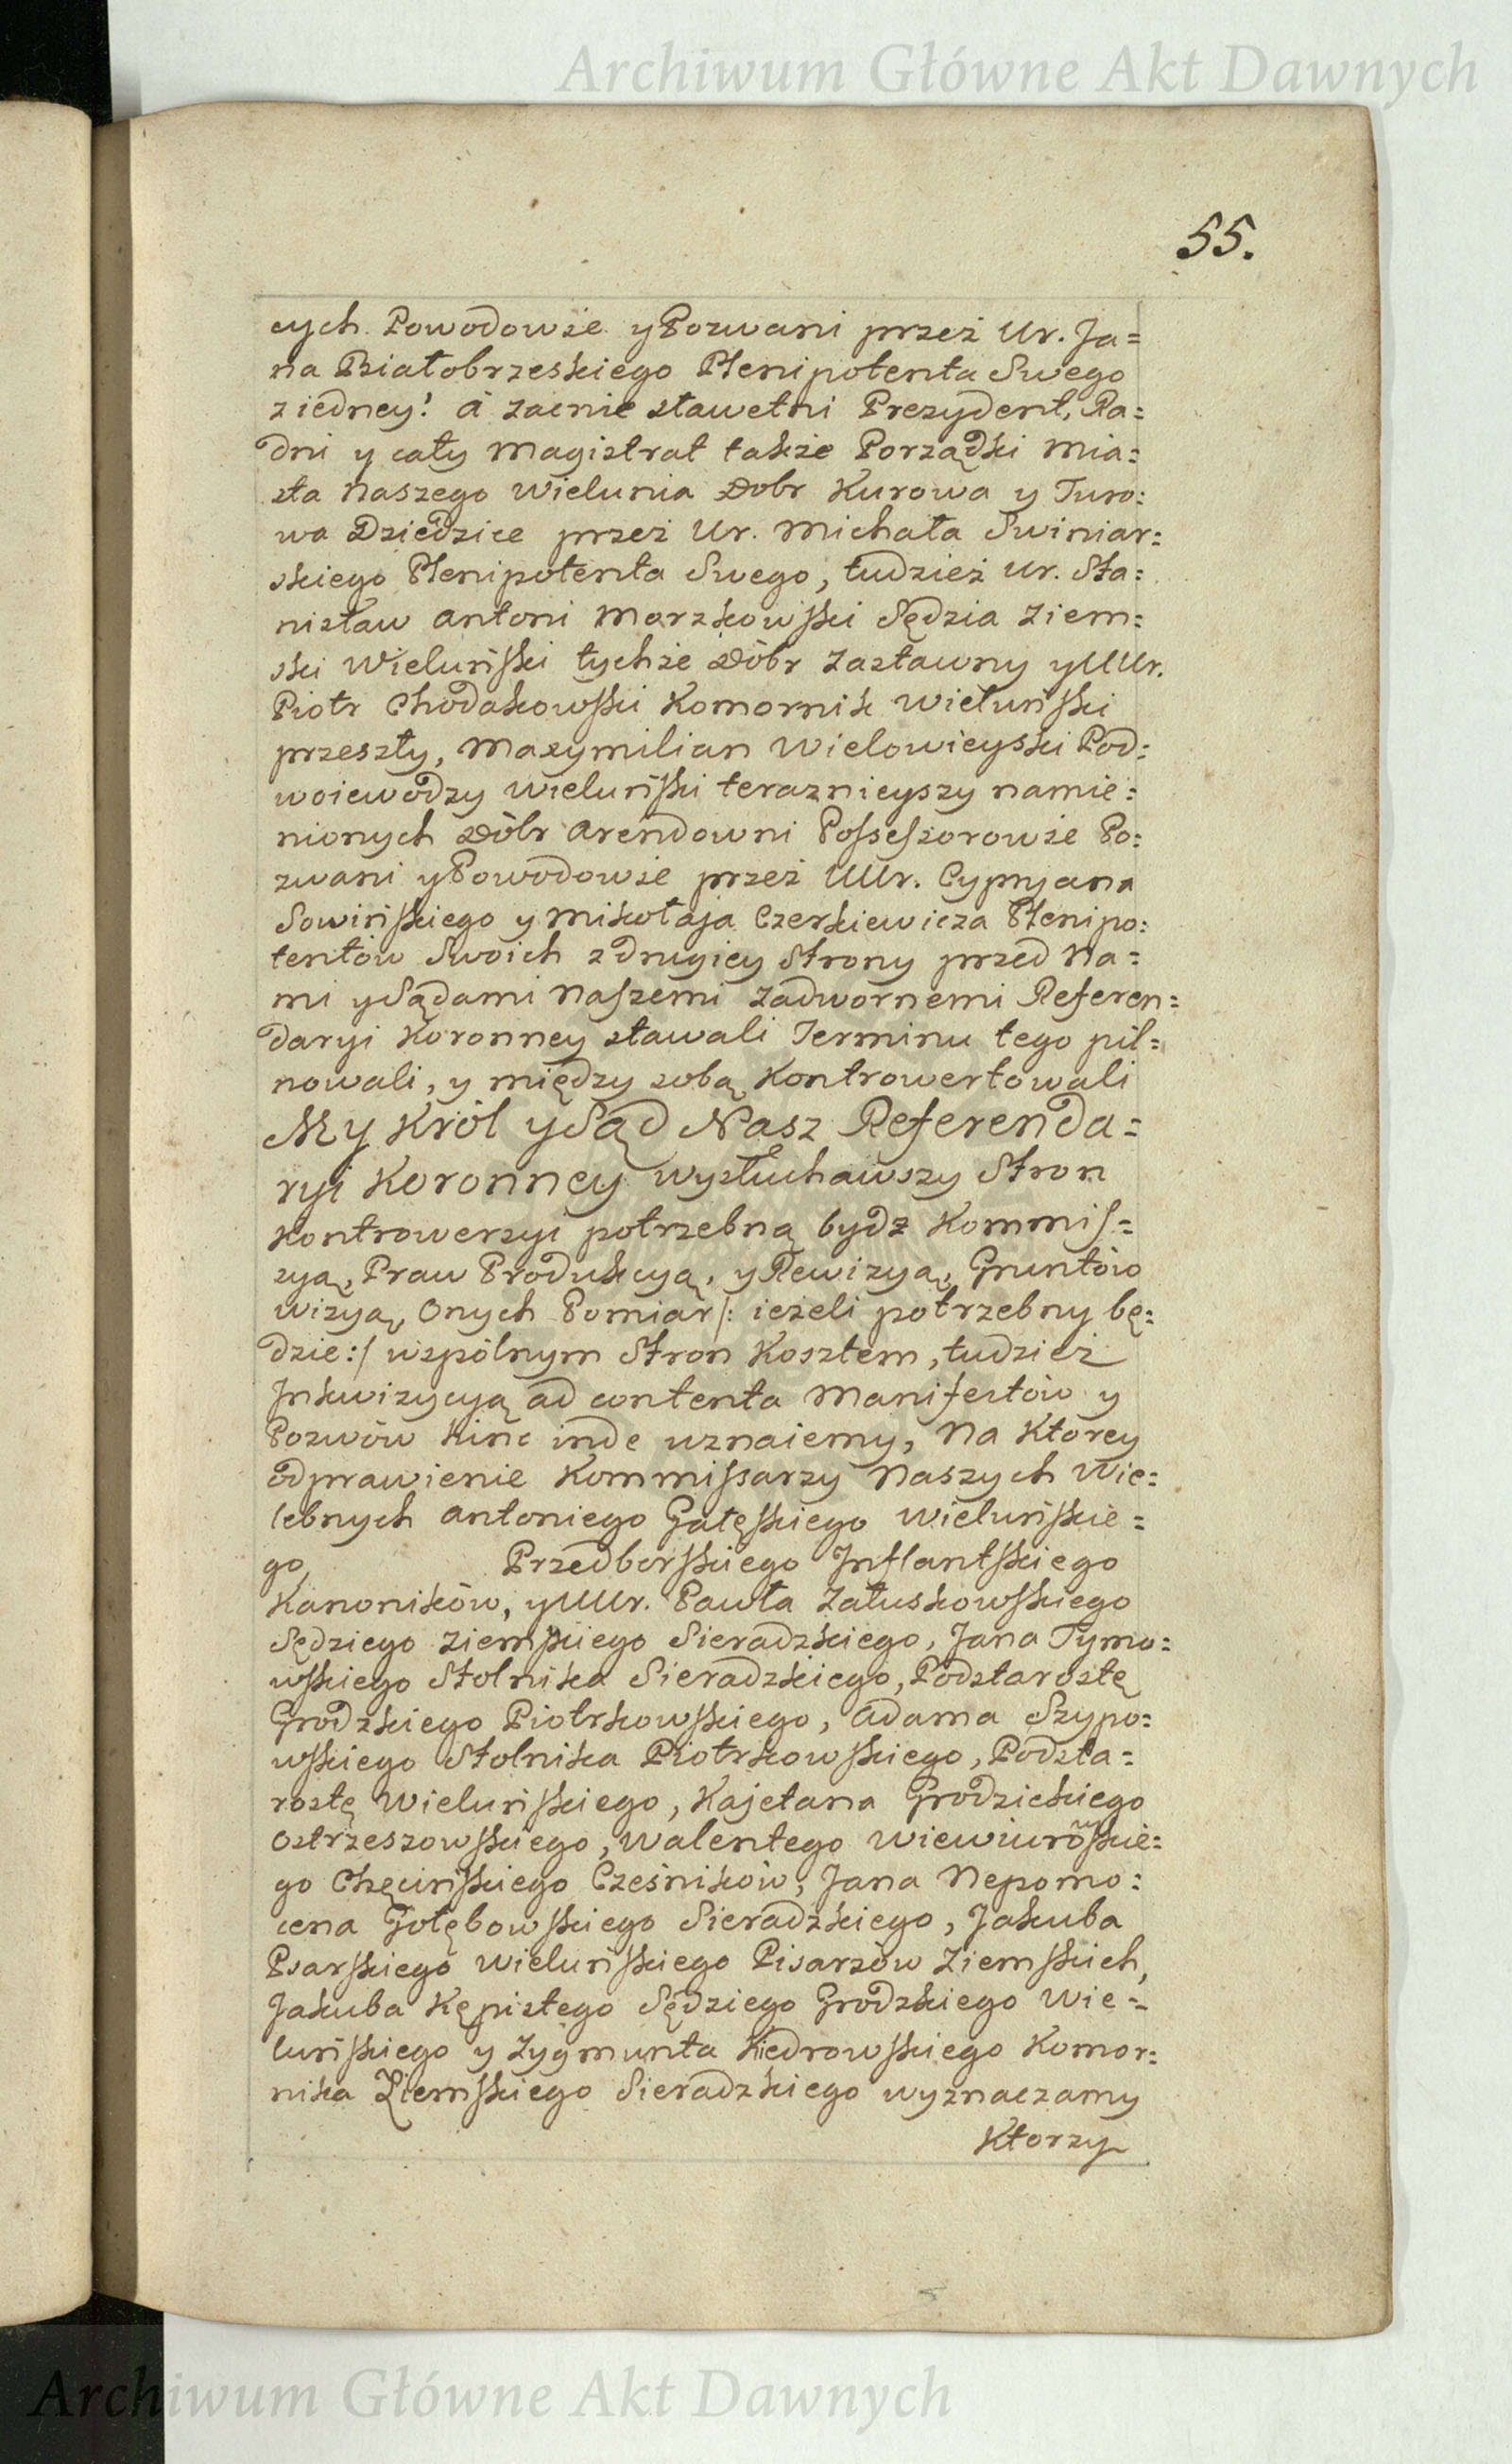 Archiwum Główne Akt Dawnych
55.
cych Powodowie y Pozwani przez Ur. Ja=
na Białobrzeskiego Plenipotenta Swego
z iedney! á zacnie sławetni Prezydent, Ra=
dni y cały Magistrat także Porządki Mia=
sta Naszego Wielunia Dobr Kurowa y Turo:
wa Dziedzice przez Ur. Michała Swiniar:
skiego Plenipotenta Swego, tudzież Ur. Sta:
nisław Antoni Morzkowski Sędzia Ziem:
ski Wieluński tychże Dóbr Zastawny y UUr.
Piotr Chodakowski Komornik Wieluński
przeszły, Maxymilian Wielowieyski Pod:
woiewodzy Wieluński teraznieyszy namie:
nionych Dóbr Arendowni Possessorowie Po:
zwani y Powodowie przez UUr. Cypryana
Sowińskiego y Mikołaja Czerkiewicza Plenipo:
tentów Swoich z drugiey Strony przed Na=
mi y Sądami Naszemi Zadwornemi Referen=
daryi Koronney stawali Terminu tego pil=
nowali, y między sobą Kontrowertowali
My Król y Sąd Nasz Referenda=
ryi Koronney wysłuchawszy Stron
Kontrowersyi potrzebną bydz Kommis=
syą, Praw Produkcyą, y Rewizyą, Gruntów
wizyą, Onych Pomiar /: ieżeli potrzebny bę:
dzie :/ wspólnym Stron Kosztem, tudzież
Inkwizycyą ad contenta Manifestów y
Pozwów hinc inde uznaiemy, Na Ktorey
odprawienie Kommissarzy Naszych Wie:
lebnych Antoniego Gałęskiego Wieluńskie=
go Przedborskiego Inflantskiego
Kanoników, y UUr. Pawła Załuskowskiego
Sędziego Ziemskiego Sieradzkiego, Jana Tymo:
wskiego Stolnika Sieradzkiego, Podstarostę
Grodzkiego Piotrkowskiego, Adama Szypo:
wskiego Stolnika Piotrkowskiego, Podsta=
rostę Wieluńskiego, Kajetana Grodzickiego
Ostrzeszowskiego, Walentego Wiewiurowskie:
go Chęcińskiego Cześników, Jana Nepomo:
cena Gołębowskiego Sieradzkiego, Jakuba
Psarskiego Wieluńskiego Pisarzów Ziemskich,
Jakuba Kępistego Sędziego Grodzkiego Wie=
luńskiego y Zygmunta Kiedrowskiego Komor:
nika Ziemskiego Sieradzkiego wyznaczamy
Ktorzy
Archiwum Główne Akt Dawnych